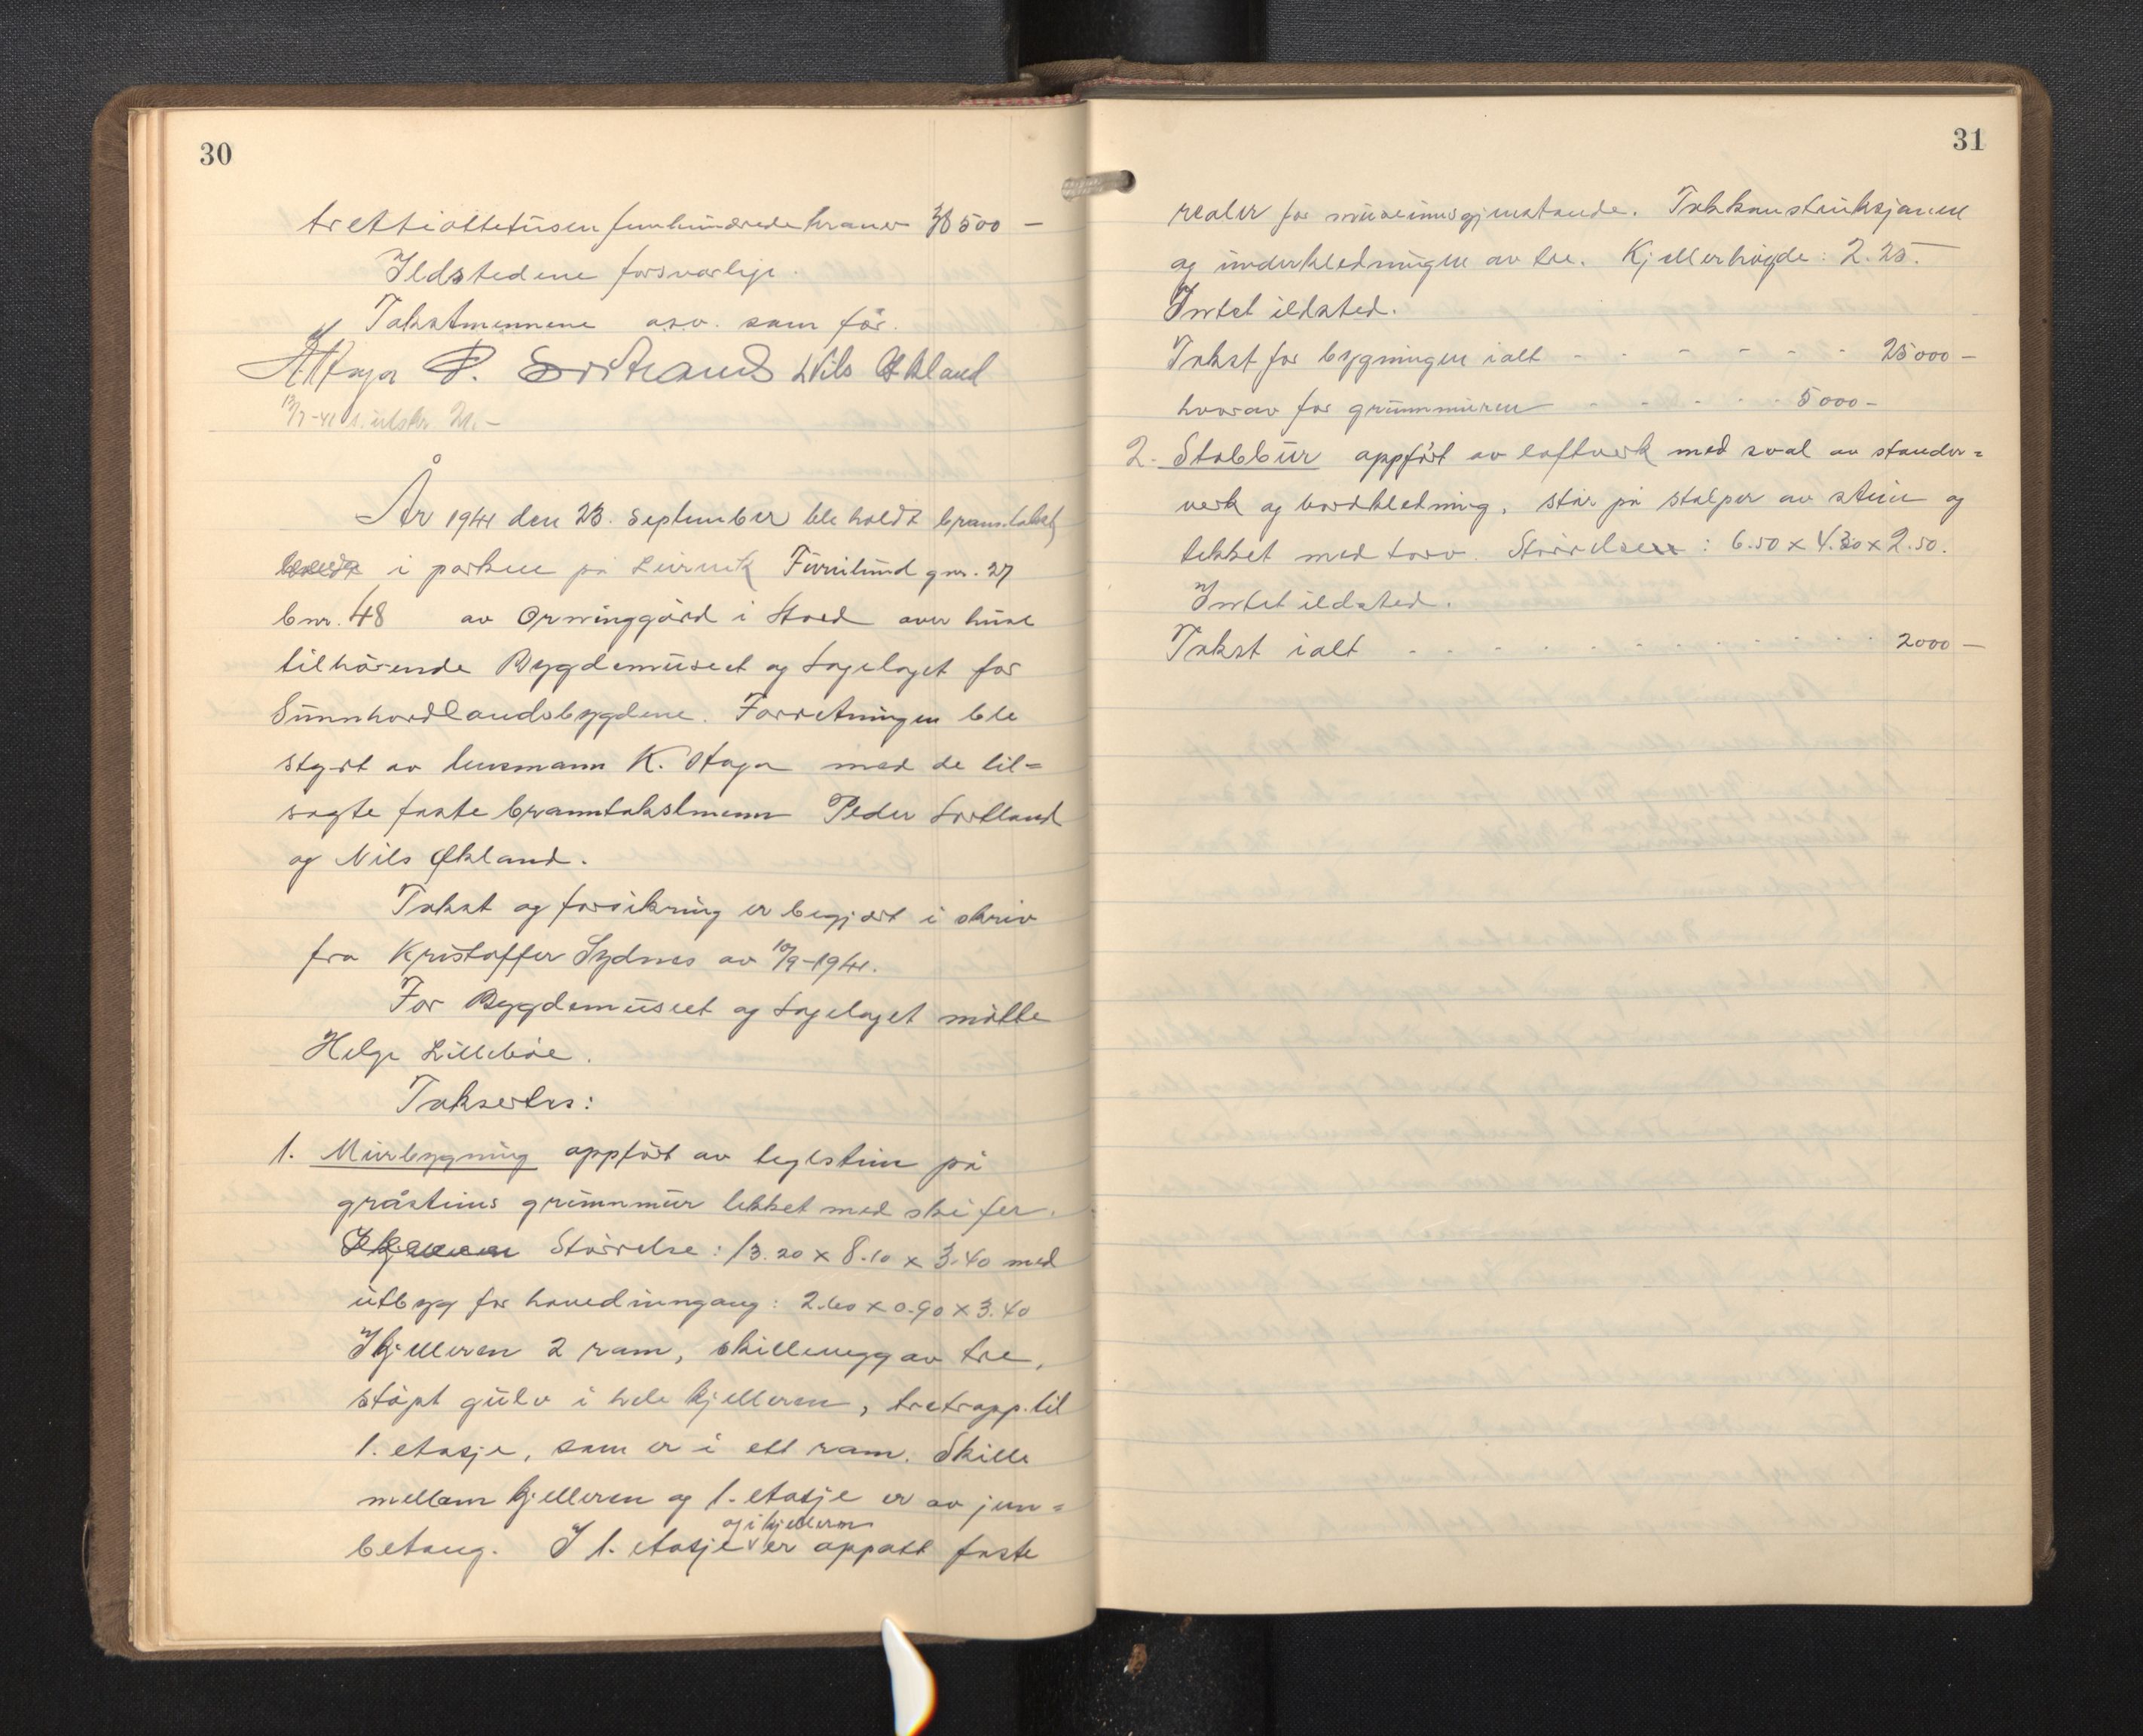 30
trettiåttetusenfemhundredekroner 38500 —
Ildstedene forsvarlige.
Takstmennene o.s.v. som før.
K Hage P. Sortland Nils Økland
13/9-41 1. utskr.
År 1941 den 23. september ble holdt branntakst
i parken på Leirvik Furulund gnr. 27
bnr. 48 av Orninggård i Stord over huse
tilhørende Bygdemuseet og Sogelaget for
Sunnhordlandsbygdene. Forretningen ble
styrt av lensmann K. Hage med de til=
sagte faste branntakstmenn Peder Sortland
og Nils Økland.
Takst og forsikring er begjært i skriv
fra Kristoffer Sydnes av 10/9-1941.
For Bygdemuseet og Sogelaget møtte
Helge Lillebøe.
Takseres:
1. Murbygning oppført av teglstein på
gråsteins grunnmur tekket med skifer.
Størrelse: 13.20 x 8.10 x 3.40 med
utbygg for hovedinngang: 2.60 x 0.90 x 3.40
I kjelleren 2 rom, skillevegg av tre,
støpt gulv i hele kjelleren, tretrapp til
1. etasje, som er i ett rom. Skille
mellom kjelleren og 1. etasje er av jern=
og i kjelleren
betong. I 1. etasje er oppsatt faste
31
reoler for museumsgjenstande. Takkonstruksjonen
og underkledningen av tre. Kjellerhøgde: 2.25.
Intet ildsted.
Takst for bygningen ialt - - - - - - 25000 —
hvorav for grunnmuren - - - - - 5000 -
2. Stabbur oppført av laftverk med sval av stender=
verk og bordkledning, står på stolper av stein og
tekket med torv. Størrelse : 6.50 x 4.30 x 2.50.
Intet ildsted.
Takst ialt - - - - - - - - - - - 2000 —